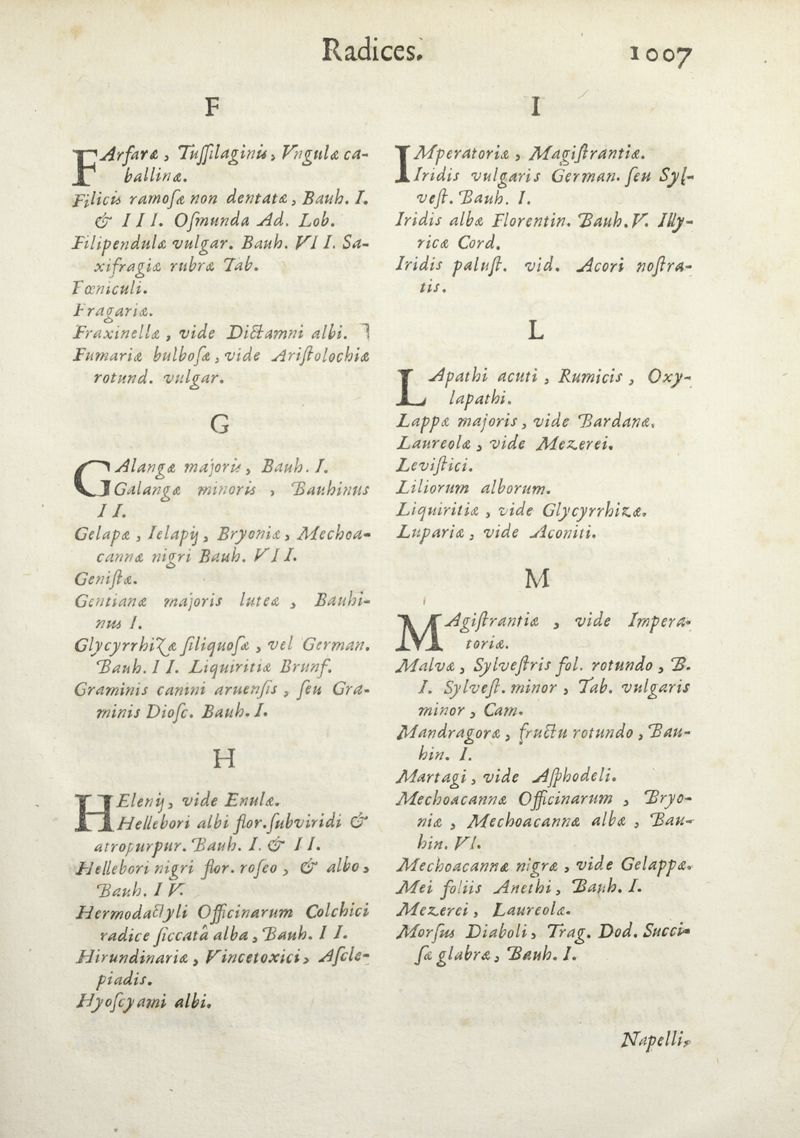 Radices. 1007
F
FArfaræ, Tuſſilaginis, Vngulæ ca-
ballinæ.
Filicis ramoſa non dentatæ, Bauh. I.
& III. Oſmunda Ad. Lob.
Filipendulæ vulgar. Bauh. VII. Sa-
xifragiæ rubræ Tab.
Fœniculi.
Fragariæ.
Fraxinellæ, vide Dictamni albi.
Fumariæ bulboſæ, vide Ariſtolochiæ
rotund. vulgar.
G
GAlangæ majoris, Bauh. I.
Galangæ minoris, Bauhinus
II.
Gelapæ, Ielapij, Bryoniæ, Mechoa-
cannæ nigri Bauh. VII.
Geniſtæ.
Gentianæ majoris luteæ, Bauhi-
nus I.
Glycyrrhizæ ſiliquoſæ, vel German.
Bauh. II. Liquiritiæ Brunf.
Graminis canini aruenſis, ſeu Gra-
minis Dioſc. Bauh. I.
H
HElenij, vide Enulæ.
Hellebori albi flor. ſubviridi &
atropurpur. Bauh. I. & II.
Hellebori nigri flor. roſeo, & albo,
Bauh. IV.
Hermodactyli Officinarum Colchici
radice ſiccatâ alba, Bauh. II.
Hirundinariæ, Vincetoxici, Aſcle-
piadis.
Hyoſcyami albi.
I
IMperatoriæ, Magiſtrantiæ.
Iridis vulgaris German. ſeu Syl-
veſt. Bauh. I.
Iridis albæ Florentin. Bauh. V. Illy-
ricæ Cord.
Iridis paluſt. vid. Acori noſtra-
tis.
L
LApathi acuti, Rumicis, Oxy-
lapathi.
Lappæ majoris, vide Bardanæ.
Laureolæ, vide Mezerei.
Leviſtici.
Liliorum alborum.
Liquiritiæ, vide Glycyrrhizæ.
Lupariæ, vide Aconiti.
M
MAgiſtrantiæ, vide Impera-
toriæ.
Malvæ, Sylveſtris fol. rotundo, B.
I. Sylveſt. minor, Tab. vulgaris
minor, Cam.
Mandragoræ, fructu rotundo, Bau-
hin. I.
Martagi, vide Aſphodeli.
Mechoacannæ Officinarum, Bryo-
niæ, Mechoacannæ albæ, Bau-
hin. VI.
Mechoacannæ nigræ, vide Gelappæ.
Mei foliis Anethi, Bauh. I.
Mezerei, Laureolæ.
Morſus Diaboli, Trag. Dod. Succi-
ſæ glabræ, Bauh. I.
Napelli,